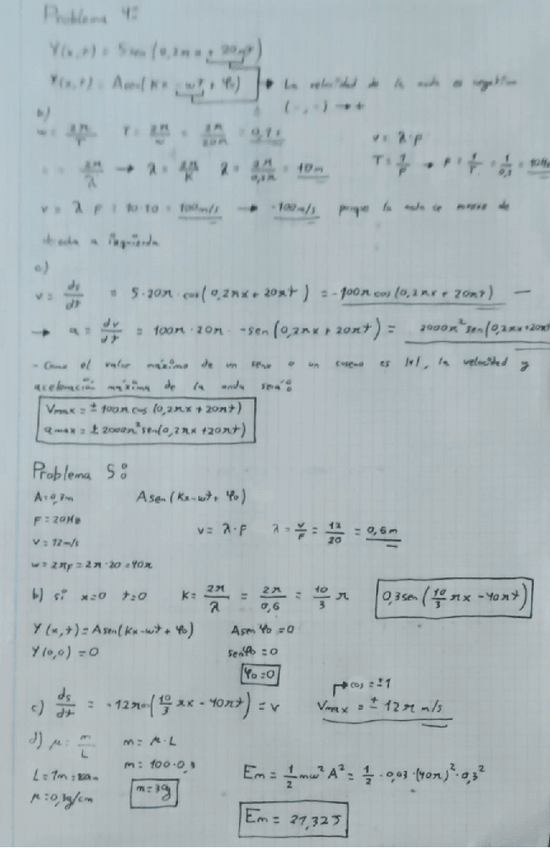 Problema 4:
Y(x,t) = 5 sen (0,2πx + 20πt)
Y(x,t) = A sen (Kx - wt + φ₀) → La velocidad de la onda es negativa
(-,-) → +
b)
w = 2π/T T = 2π/w = 2π/20π = 0,1 s v = λ·f
= 2π/λ → λ = 2π/K λ = 2π/0,2π = 10m T = 1/F → F = 1/T = 1/0,1 = 10Hz
v = λ F = 10·10 = 100m/s → -100m/s porque la onda se mueve de
derecha a izquierda
c)
v = ds/dt = 5·20π·cos(0,2πx + 20πt) = -100π cos(0,2πx + 20πt) —
→ a = dv/dt = 100π·20π·-sen(0,2πx + 20πt) = 2000π² sen(0,2πx + 20πt)
- Como el valor máximo de un seno o un coseno es |±1|, la velocidad y
aceleración máxima de la onda será:
Vmax = ± 100π cos (0,2πx + 20πt)
amax = ± 2000π² sen(0,2πx + 20πt)
Problema 5:
A = 0,3m A sen (Kx - wt + φ₀)
F = 20Hz
v = λ·F λ = v/F = 12/20 = 0,6m
v = 12m/s
w = 2πF = 2π·20 = 40π
b) si x=0 t=0 K = 2π/λ = 2π/0,6 = 10/3 π 0,3 sen (10/3 πx - 40πt)
Y(x,t) = A sen(Kx - wt + φ₀) A sen φ₀ = 0
Y(0,0) = 0 sen φ₀ = 0
φ₀ = 0
→ cos = ±1
c) ds/dt = -12π (10/3 πx - 40πt) = v Vmax = ± 12π m/s
d) μ = m/L m = μ·L
m = 100·0,3 Em = 1/2 mw² A² = 1/2 · 0,03 · (40π)² · 0,3²
L = 1m = 100cm
m = 3g
μ = 0,3g/cm
Em = 21,32J